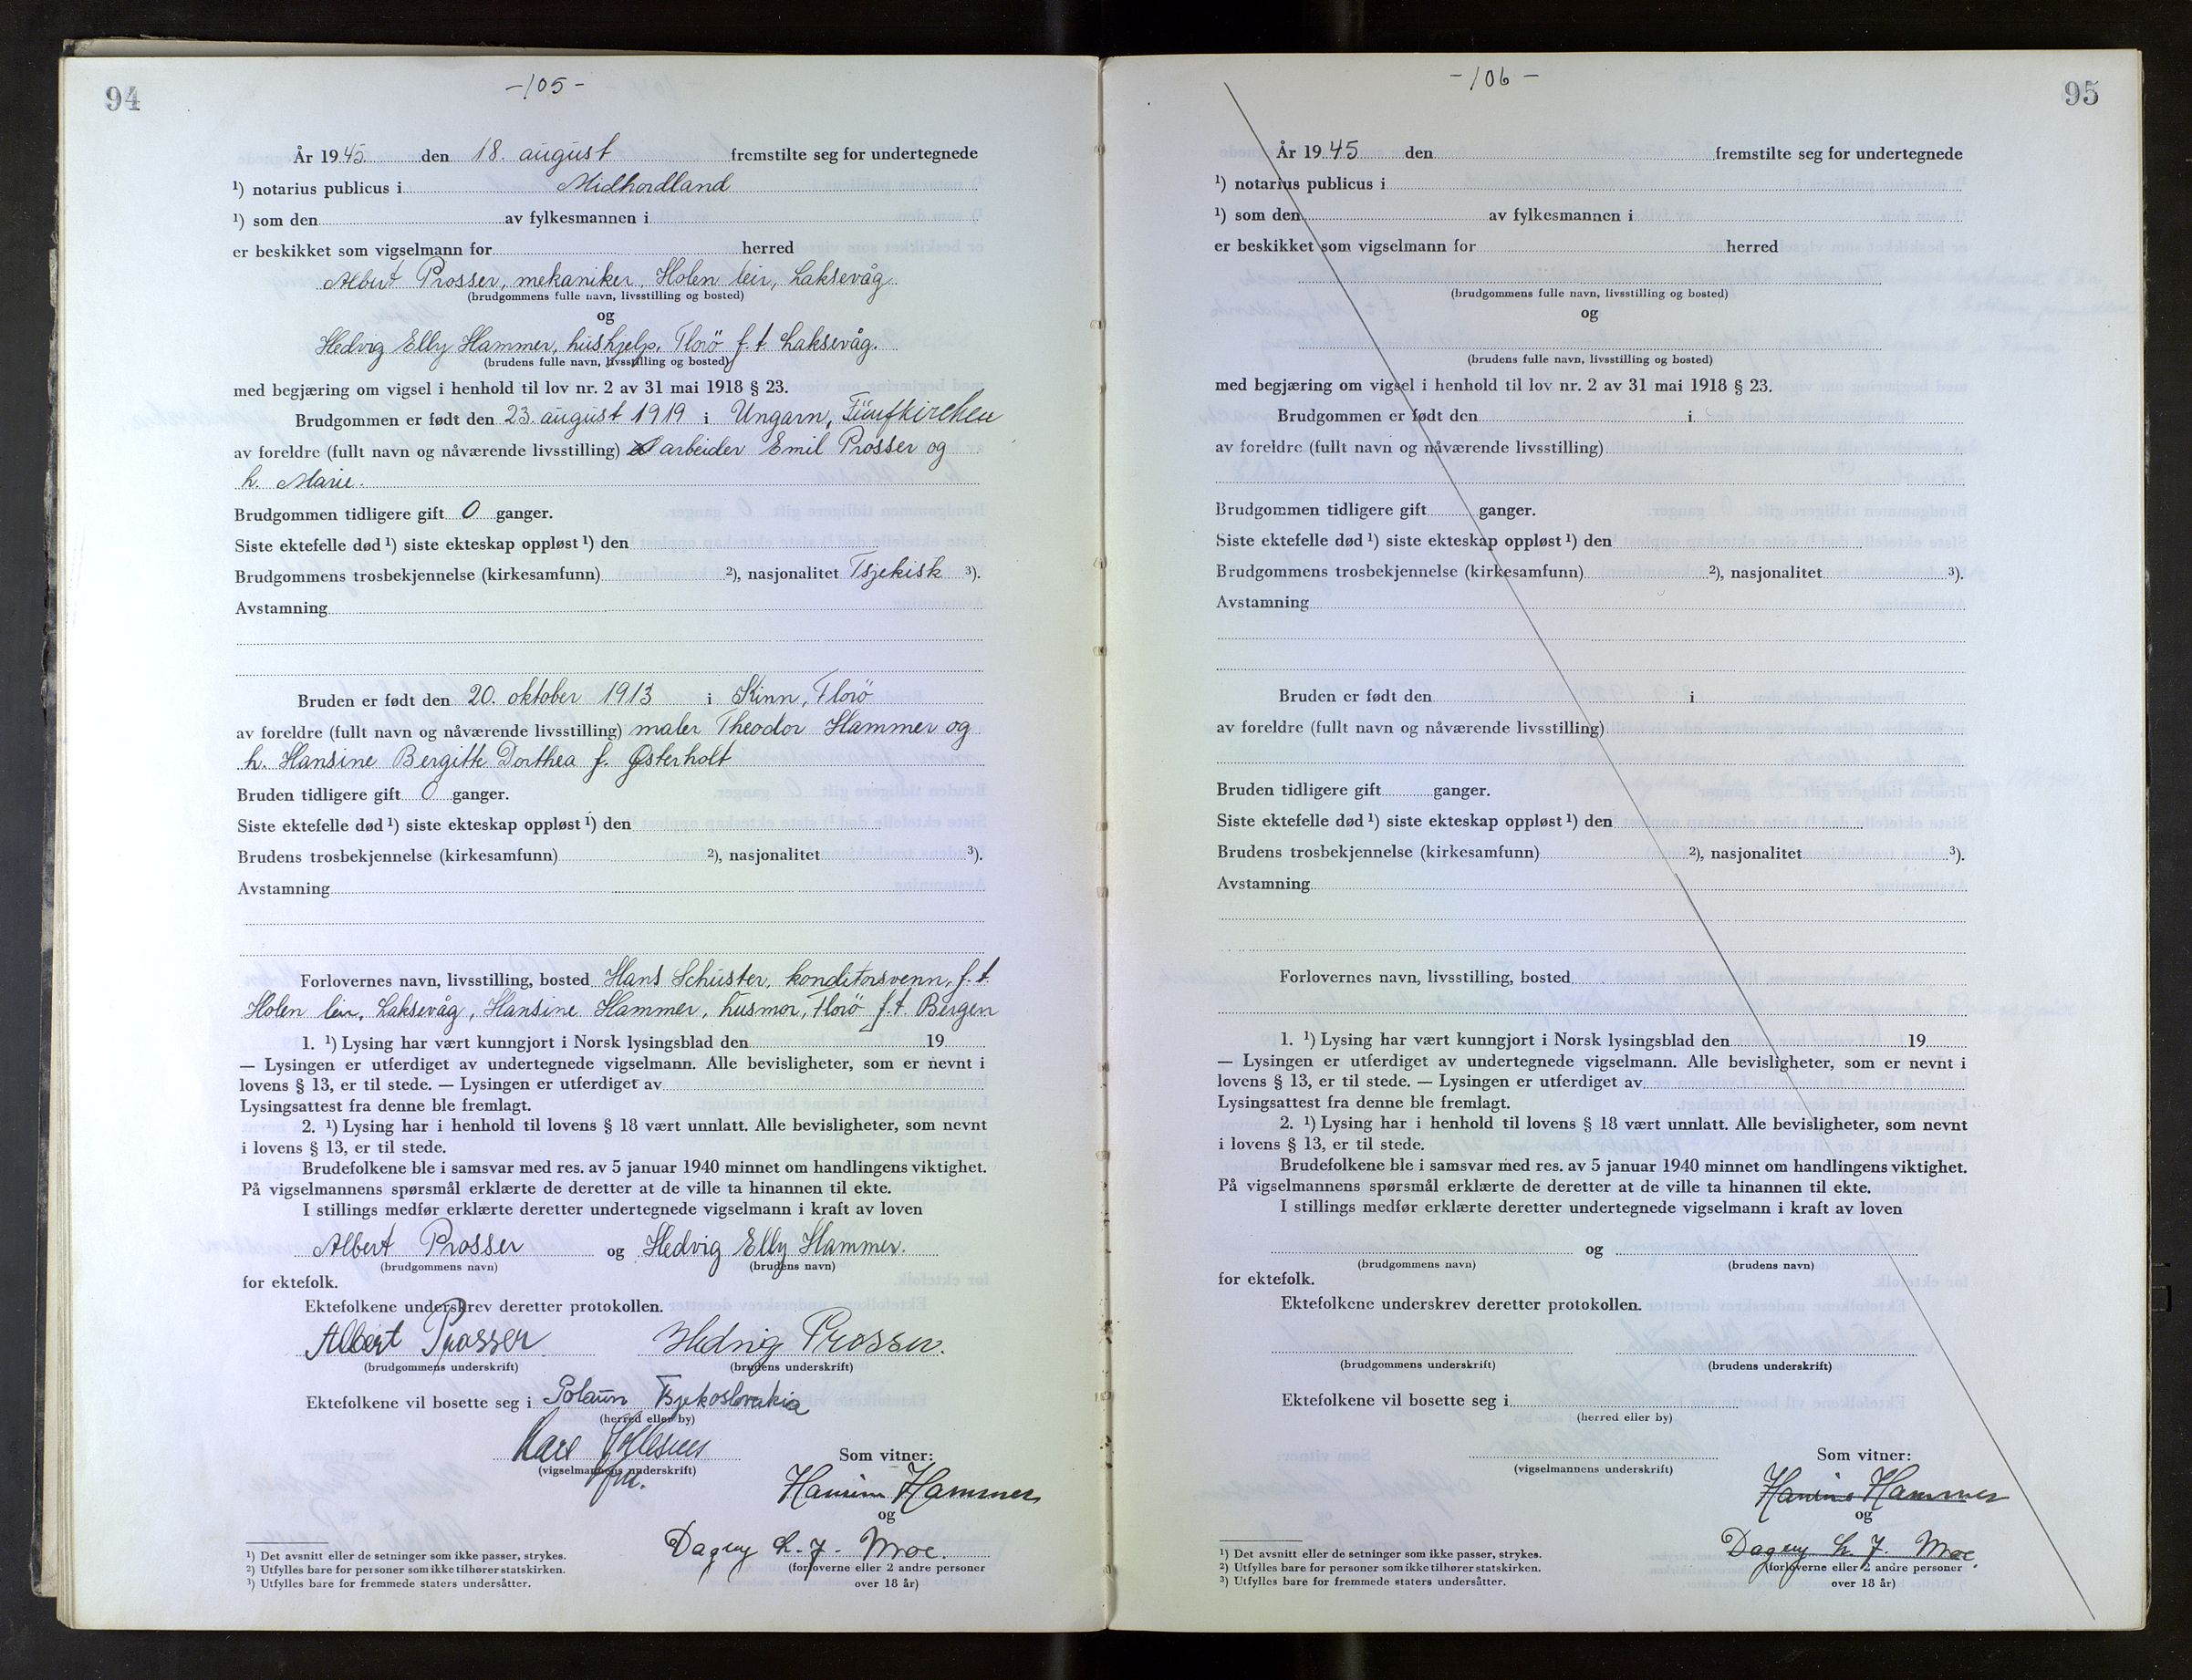 94
-105-
År 1945 den 18. august fremstilte seg for undertegnede
¹) notarius publicus i Midhordland
¹) som den av fylkesmannen i
er beskikket som vigselmann for herred
Albert Prosser, mekaniker, Holen leir, Laksevåg
(brudgommens fulle navn, livsstilling og bosted)
og
Hedvig Elly Hammer, hushjelp, Florö f.t. Laksevåg.
(brudens fulle navn, livsstilling og bosted)
med begjæring om vigsel i henhold til lov nr. 2 av 31 mai 1918 § 23.
Brudgommen er født den 23. august 1919 i Ungarn, Fünfkirchen
av foreldre (fullt navn og nåværende livsstilling) arbeider Emil Prosser og
h. Marie.
Brudgommen tidligere gift 0 ganger.
Siste ektefelle død ¹) siste ekteskap oppløst ¹) den
Brudgommens trosbekjennelse (kirkesamfunn) ²), nasjonalitet Tsjekisk ³).
Avstamning
Bruden er født den 20. oktober 1913 i Kinn, Florö
av foreldre (fullt navn og nåværende livsstilling) maler Theodor Hammer og
h. Hansine Bergitte Dorthea f. Østerholt
Bruden tidligere gift 0 ganger.
Siste ektefelle død ¹) siste ekteskap oppløst ¹) den
Brudens trosbekjennelse (kirkesamfunn) ²), nasjonalitet ³).
Avstamning
Forlovernes navn, livsstilling, bosted Hans Schuster, konditorsvenn, f.t.
Holen leir, Laksevåg, Hansine Hammer, husmor, Florö f.t. Bergen
1. ¹) Lysing har vært kunngjort i Norsk lysingsblad den 19
— Lysingen er utferdiget av undertegnede vigselmann. Alle bevisligheter, som er nevnt i
lovens § 13, er til stede. — Lysingen er utferdiget av
Lysingsattest fra denne ble fremlagt.
2. ¹) Lysing har i henhold til lovens § 18 vært unnlatt. Alle bevisligheter, som nevnt
i lovens § 13, er til stede.
Brudefolkene ble i samsvar med res. av 5 januar 1940 minnet om handlingens viktighet.
På vigselmannens spørsmål erklærte de deretter at de ville ta hinannen til ekte.
I stillings medfør erklærte deretter undertegnede vigselmann i kraft av loven
Albert Prosser og Hedvig Elly Hammer.
(brudgommens navn) (brudens navn)
for ektefolk.
Ektefolkene underskrev deretter protokollen.
Albert Prosser Hedvig Prosser.
(brudgommens underskrift) (brudens underskrift)
Ektefolkene vil bosette seg i Polaun Tsjekoslovakia
(herred eller by)
(vigselmannens underskrift)
Som vitner:
Hansine Hammer
og
Dagny L. J. Moe.
(forloverne eller 2 andre personer
over 18 år)
¹) Det avsnitt eller de setninger som ikke passer, strykes.
²) Utfylles bare for personer som ikke tilhører statskirken.
³) Utfylles bare for fremmede staters undersåtter.
95
-106-
År 1945 den fremstilte seg for undertegnede
¹) notarius publicus i
¹) som den av fylkesmannen i
er beskikket som vigselmann for herred
(brudgommens fulle navn, livsstilling og bosted)
og
(brudens fulle navn, livsstilling og bosted)
med begjæring om vigsel i henhold til lov nr. 2 av 31 mai 1918 § 23.
Brudgommen er født den i
av foreldre (fullt navn og nåværende livsstilling)
Brudgommen tidligere gift ganger.
Siste ektefelle død ¹) siste ekteskap oppløst ¹) den
Brudgommens trosbekjennelse (kirkesamfunn) ²), nasjonalitet ³).
Avstamning
Bruden er født den i
av foreldre (fullt navn og nåværende livsstilling)
Bruden tidligere gift ganger.
Siste ektefelle død ¹) siste ekteskap oppløst ¹) den
Brudens trosbekjennelse (kirkesamfunn) ²), nasjonalitet ³).
Avstamning
Forlovernes navn, livsstilling, bosted
1. ¹) Lysing har vært kunngjort i Norsk lysingsblad den 19
— Lysingen er utferdiget av undertegnede vigselmann. Alle bevisligheter, som er nevnt i
lovens § 13, er til stede. — Lysingen er utferdiget av
Lysingsattest fra denne ble fremlagt.
2. ¹) Lysing har i henhold til lovens § 18 vært unnlatt. Alle bevisligheter, som nevnt
i lovens § 13, er til stede.
Brudefolkene ble i samsvar med res. av 5 januar 1940 minnet om handlingens viktighet.
På vigselmannens spørsmål erklærte de deretter at de ville ta hinannen til ekte.
I stillings medfør erklærte deretter undertegnede vigselmann i kraft av loven
og
(brudgommens navn) (brudens navn)
for ektefolk.
Ektefolkene underskrev deretter protokollen.
(brudgommens underskrift) (brudens underskrift)
Ektefolkene vil bosette seg i
(herred eller by)
(vigselmannens underskrift)
Som vitner:
Hansine Hammer
og
Dagny L. J. Moe.
(forloverne eller 2 andre personer
over 18 år)
¹) Det avsnitt eller de setninger som ikke passer, strykes.
²) Utfylles bare for personer som ikke tilhører statskirken.
³) Utfylles bare for fremmede staters undersåtter.